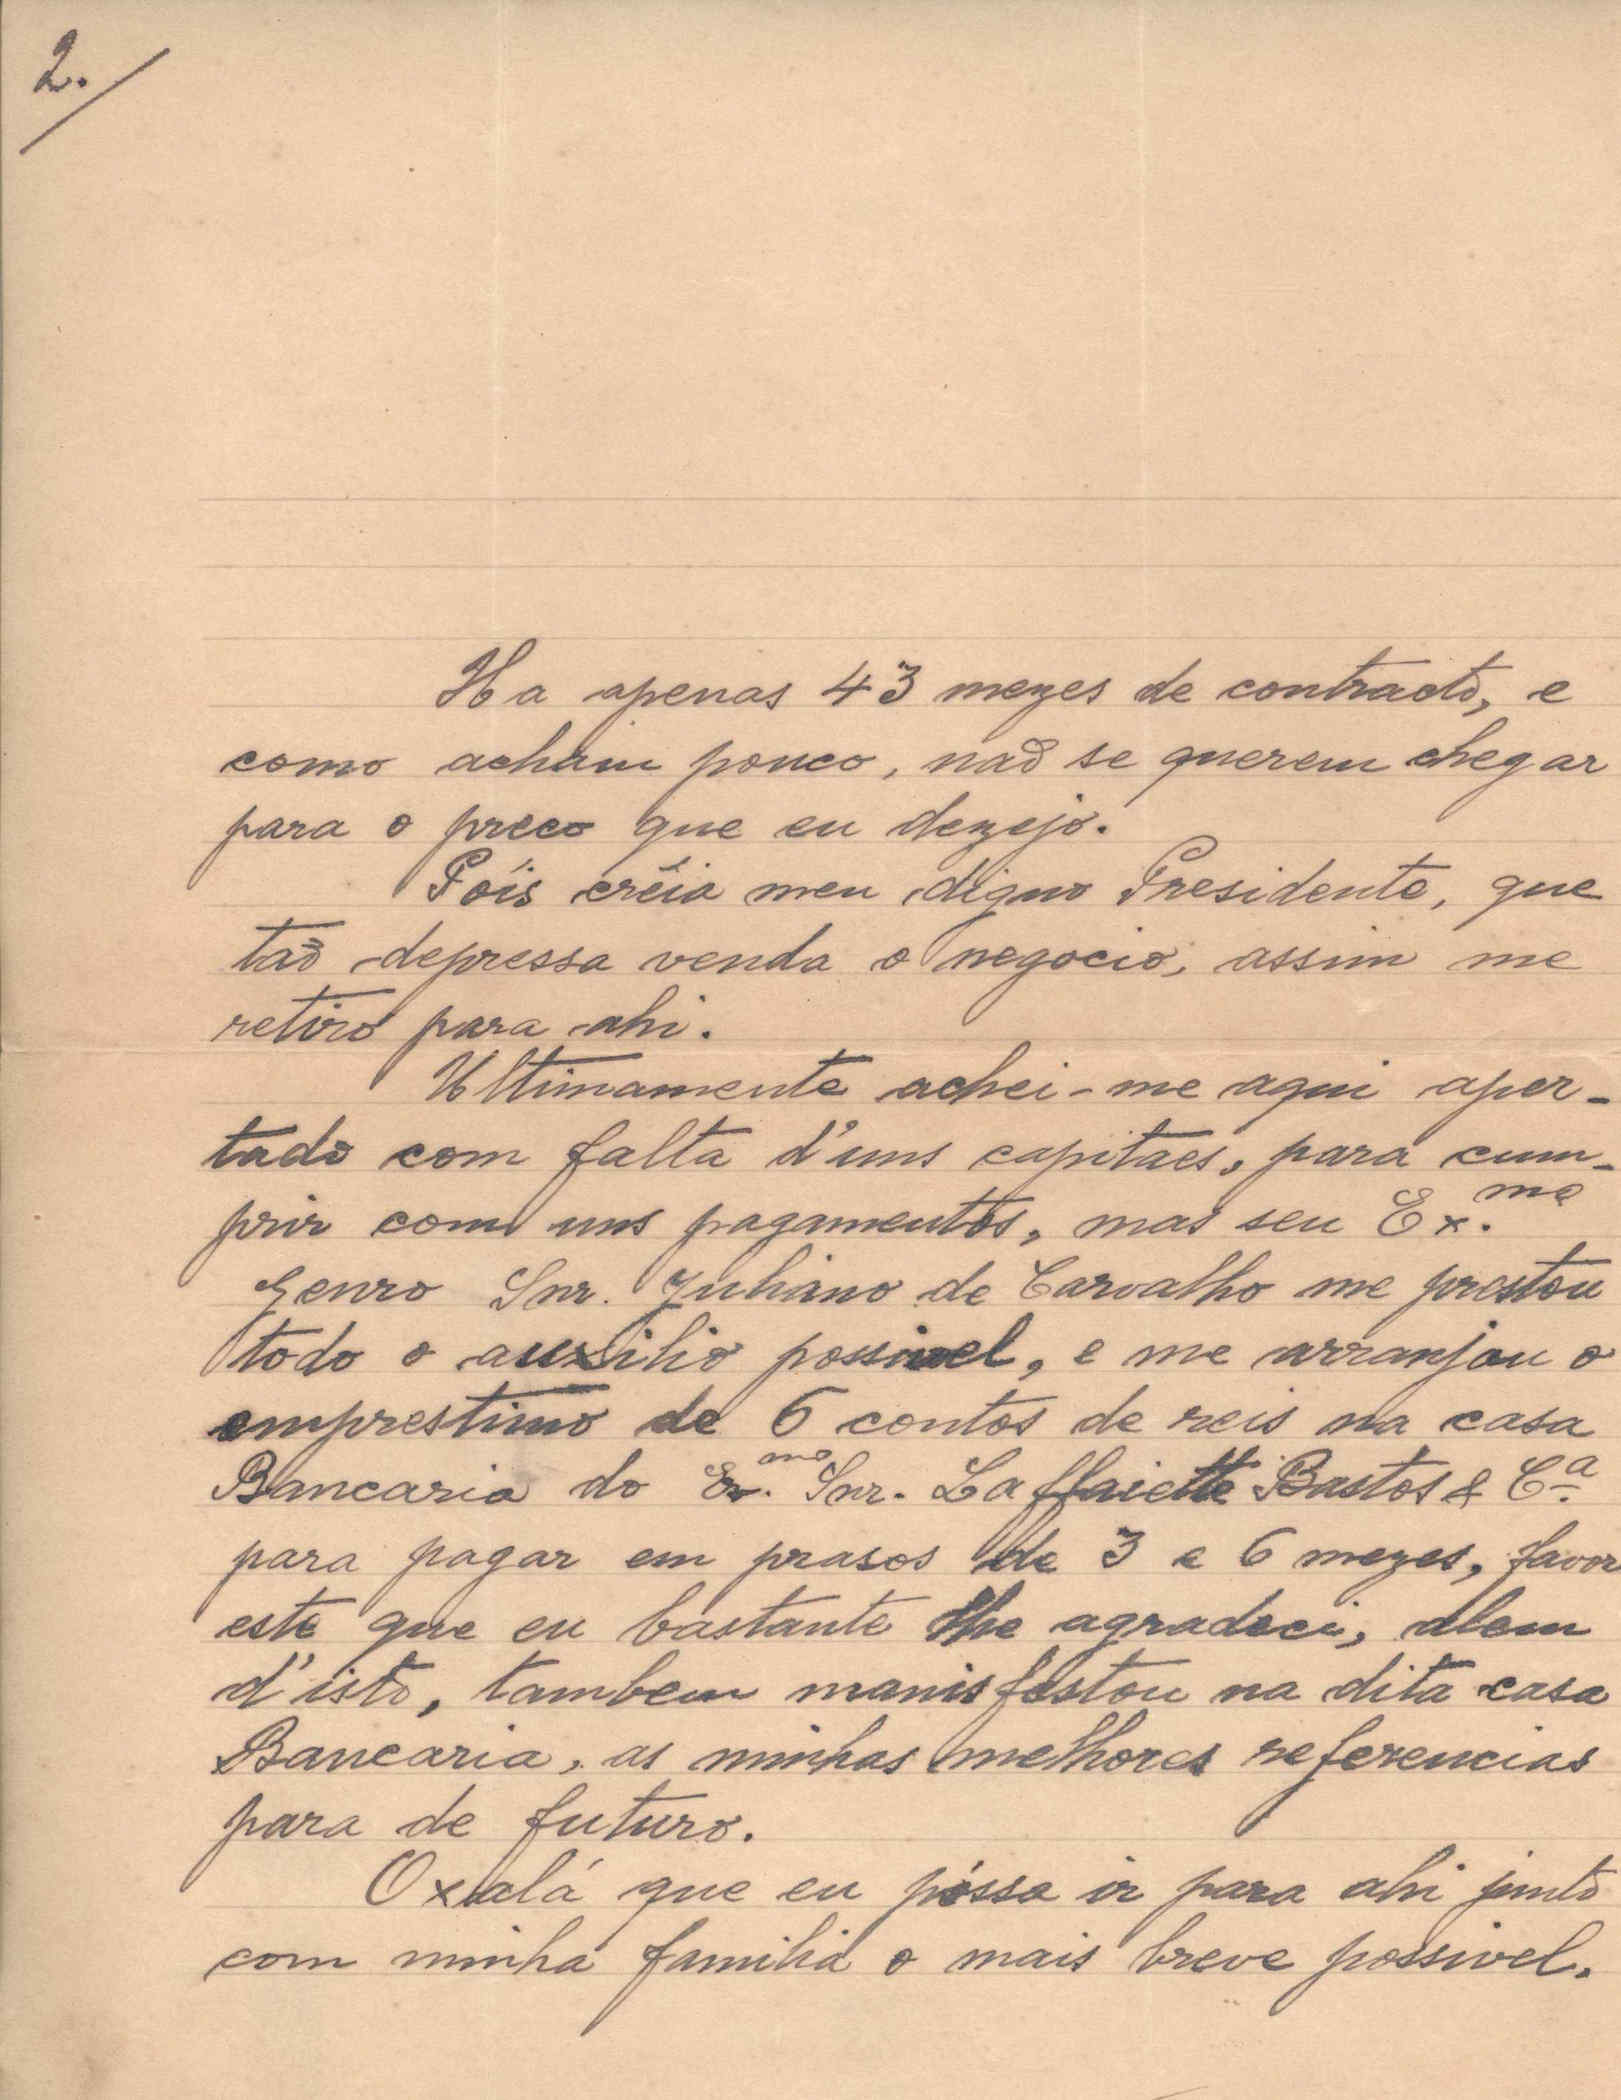 2.
Ha apenas 43 mezes de contracto, e
como acham pouco, naõ se querem chegar
para o preco que eu dezejo.
Póis crêia meu digno Presidente, que
taõ depressa venda o negocio, assim me
retiro para ahi.
Ultimamente achei-me aqui aper-
tado com falta d'uns capitaes, para cum-
prir com uns pagamentos, mas seu Ex.mo
Genro Snr. Juliano de Carvalho me prestou
todo o auxilio possivel, e me arranjou o
emprestimo de 6 contos de reis na casa
Bancaria do Ex.mo Snr. Laffaiette Bastos & C.ª
para pagar em prasos de 3 e 6 mezes, favor
este que eu bastante lhe agradeci, alem
d'isto, tambem manisfestou na dita casa
Bancaria, as minhas melhores referencias
para de futuro.
Oxalá que eu póssa ir para ahi junto
com minha familia o mais breve possivel.